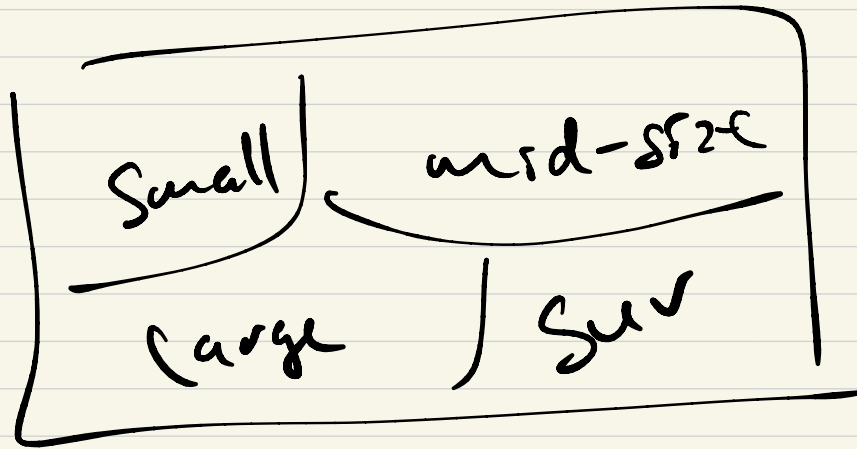 Small mid-size
Large SUV